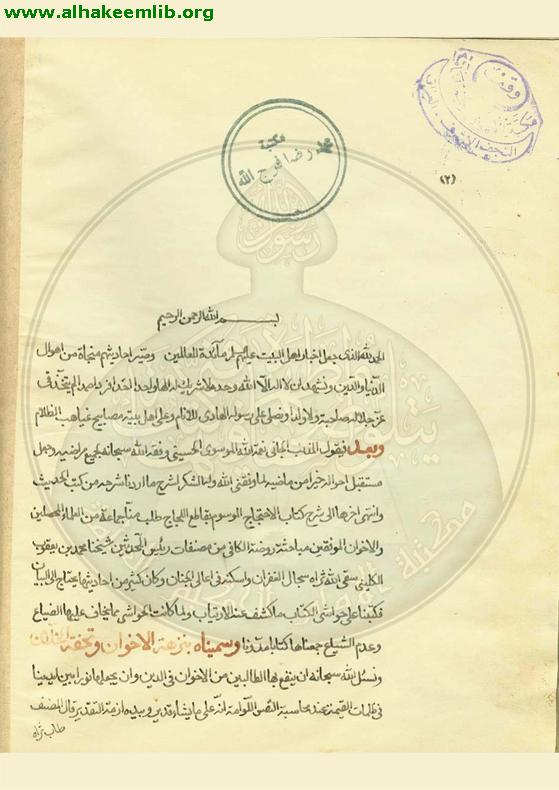 www.alhakeemlib.org
وقف
النجف الاشرف
مكتبة
محمد رضا فرج الله
(٢)
بسم الله الرحمن الرحيم
الحمد لله الذى جعل اخبار اهل البيت عليهم للعالمين وصير احاديثهم منجاة من اهوال
الدنيا والدين ونشهد ان لا اله الا الله وحده لا شريك له الها واحدا احدا فردا صمدا لم يتخذ فى
صاحبة ولا ولدا ونصلى على رسوله الهادى للانام وعلى اهل بيته مصابيح غياهب الظلام
وبعد فيقول المذنب الجانى نعمة الله الموسوى الحسينى وفقه الله سبحانه لجميع مراضيه وجعل
مستقبل احواله خيرا من ماضيه لما وفقنى الله وله الشكر لشرح ما اردنا شرحه من كتب الحديث
وانتهى اخرها الى شرح كتاب الاحتجاج الموسوم بقاطع اللجاج طلب منا جماعة من العلماء المحصلين
والاخوان الموفقين مباحثة روضة الكافى من مصنفات رئيس المحدثين شيخنا محمد بن يعقوب
الكلينى سقى الله ثراه سجال الغفران واسكنه فى اعالى الجنان وكان كثير من احاديثها يحتاج الى البيان
فكتبنا على حواشى الكتاب ما كشف عنه الارتياب ولما كانت الحواشى مما يخاف عليها الضياع
وعدم الشياع جمعناها كتابا مدونا وسميناه بنزهة الاخوان وتحفة الخلان
ونسئل الله سبحانه ان ينفع بها الطالبين من الاخوان فى الدين وان يجعلها نورا بين ايدينا
فى ظلمات القيمة عند محاسبة النفس اللوامة انه على ما يشاء قدير وبيده ازمة التقدير قال المصنف
طاب ثراه